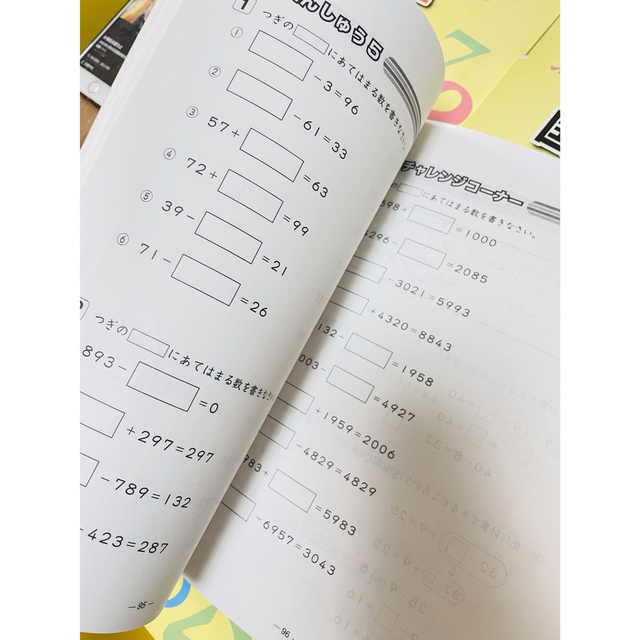 んしゅう5
1 つぎの□にあてはまる数を書きなさい。
① □-3=96
② □-61=33
③ 57+□=63
④ 72+□=99
⑤ 39-□=21
⑥ 71-□=26
つぎの□にあてはまる数を書きなさい
893-□=0
□+297=297
□-789=132
-423=287
-95-
チャレンジコーナー
の□にあてはまる数を書きなさい。
698+□=1000
4296-□=2085
□-3021=5993
□+4320=8843
132-□=1958
003-□=4927
□+1959=2006
□-4829=4829
983+□=5983
□-6957=3043
-96-